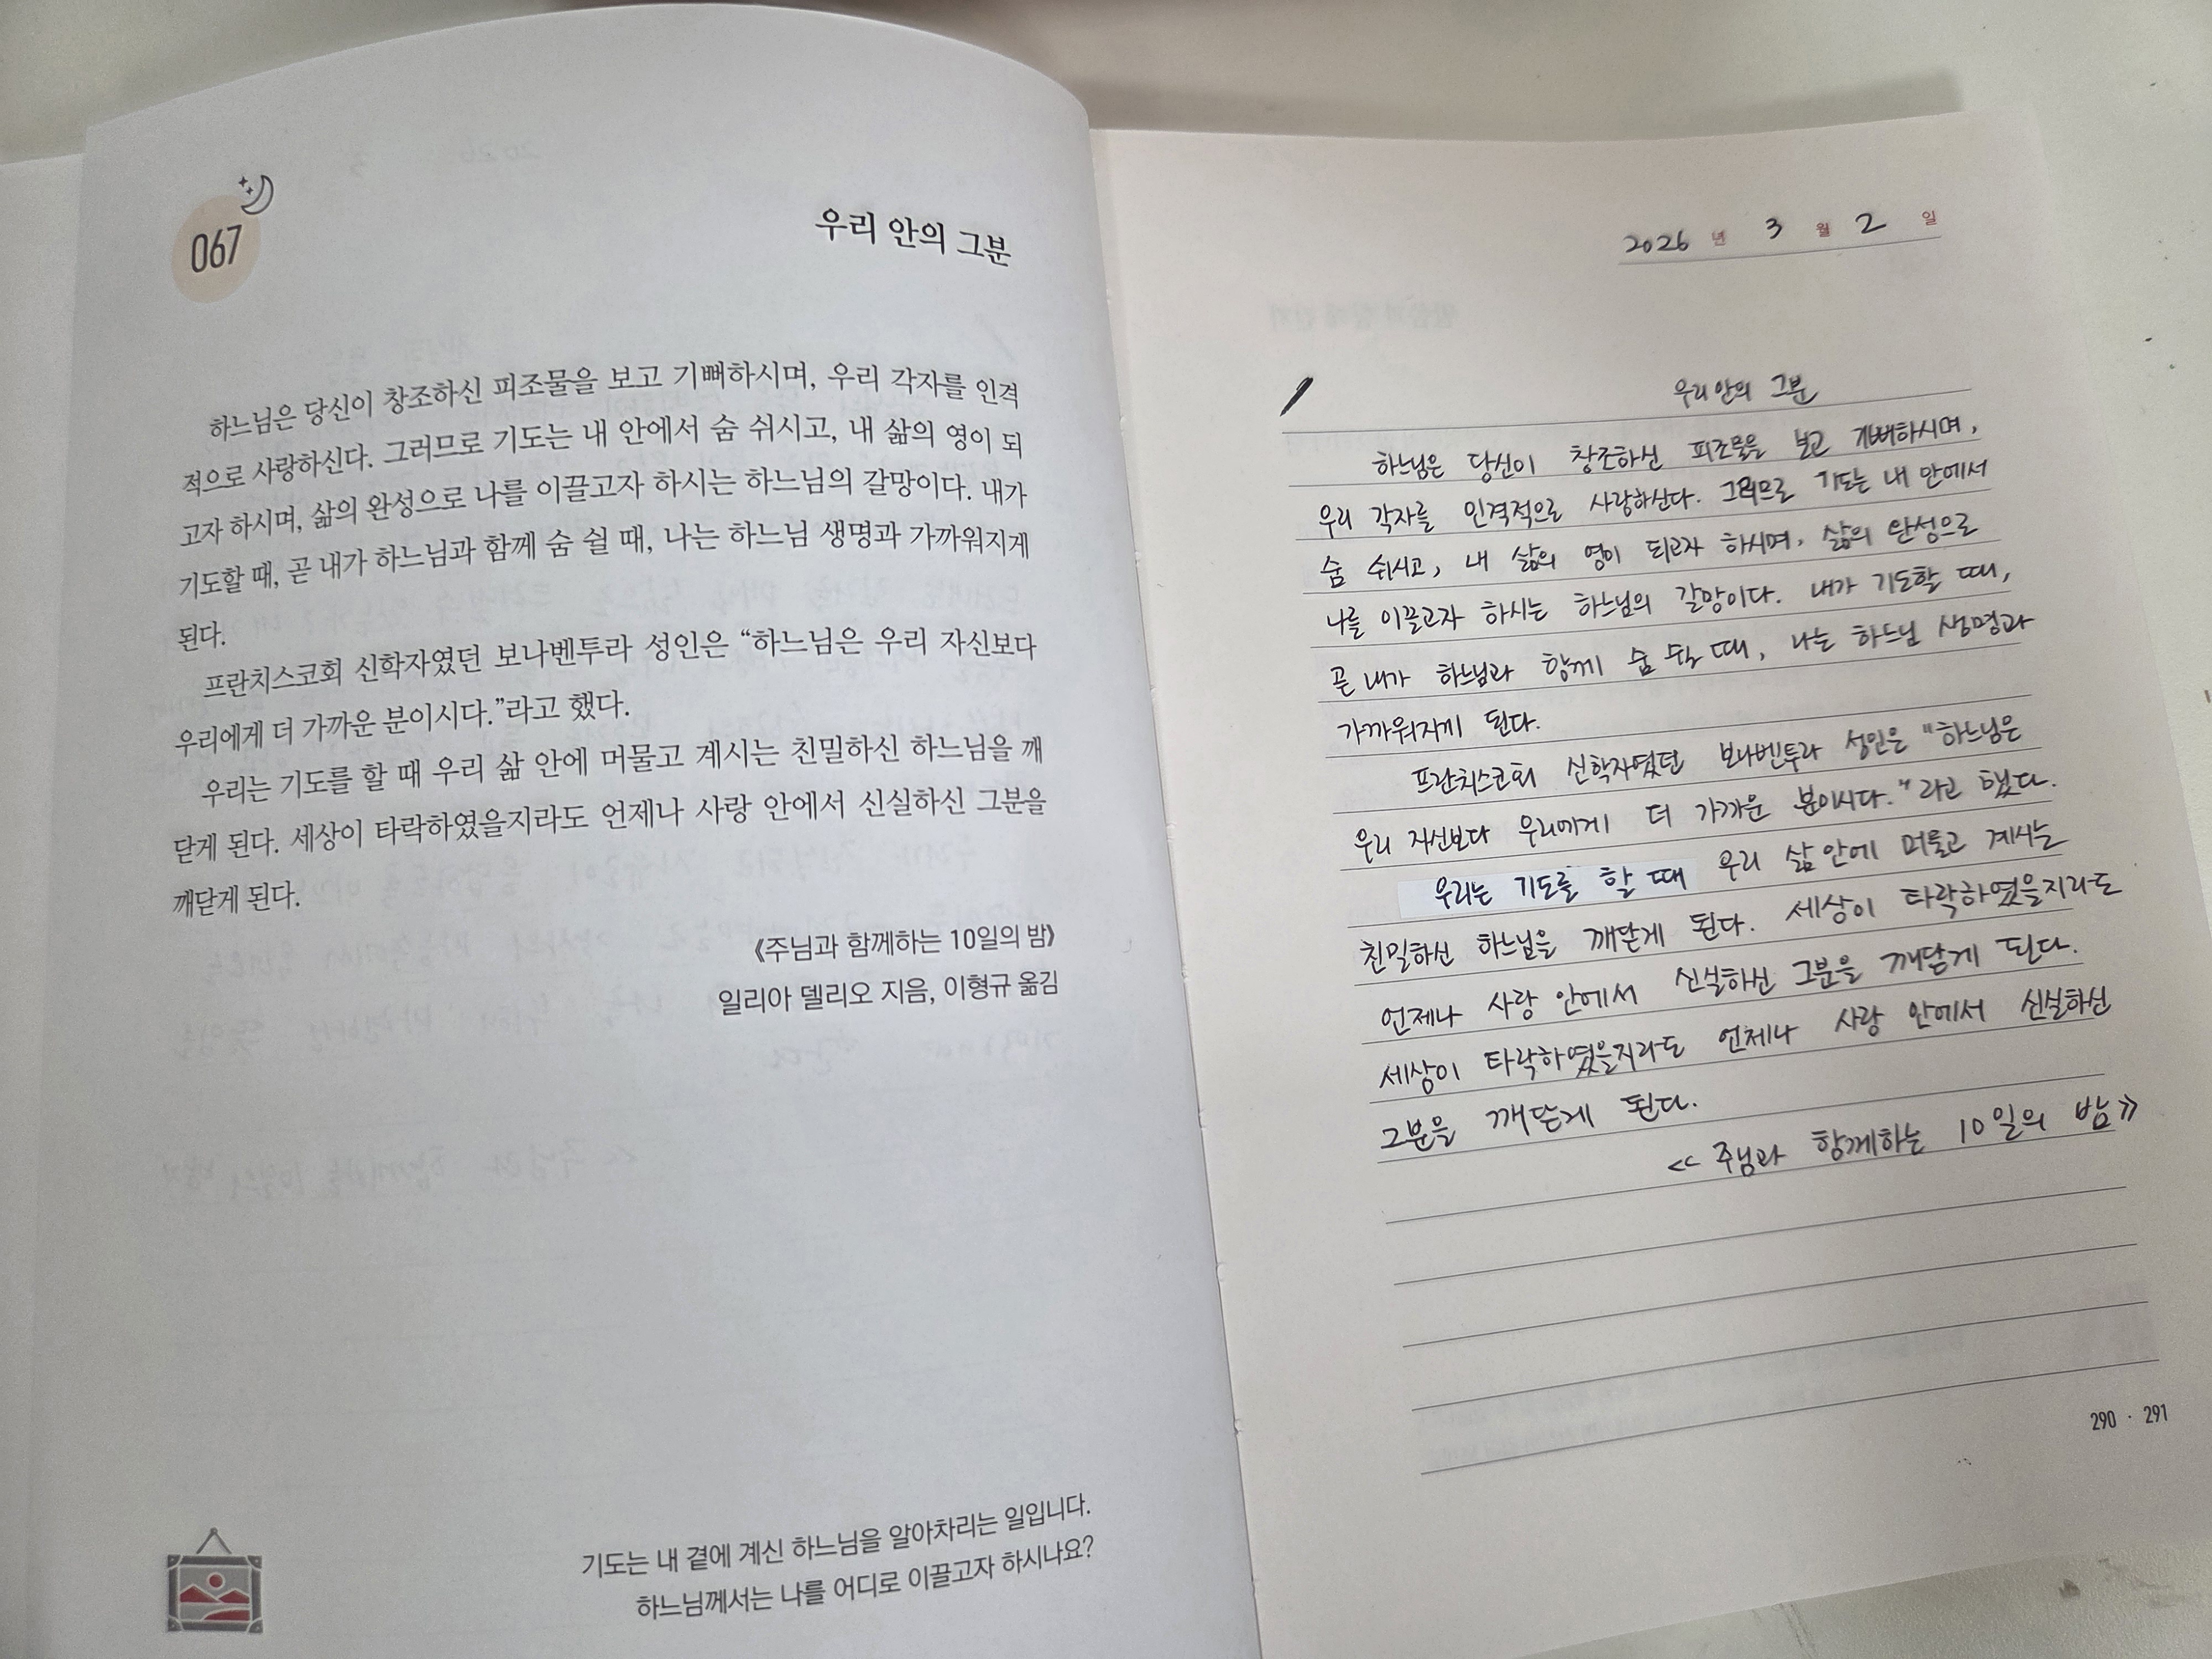 067
우리 안의 그분
하느님은 당신이 창조하신 피조물을 보고 기뻐하시며, 우리 각자를 인격
적으로 사랑하신다. 그러므로 기도는 내 안에서 숨 쉬시고, 내 삶의 영이 되
고자 하시며, 삶의 완성으로 나를 이끌고자 하시는 하느님의 갈망이다. 내가
기도할 때, 곧 내가 하느님과 함께 숨 쉴 때, 나는 하느님 생명과 가까워지게
된다.
프란치스코회 신학자였던 보나벤투라 성인은 “하느님은 우리 자신보다
우리에게 더 가까운 분이시다.”라고 했다.
우리는 기도를 할 때 우리 삶 안에 머물고 계시는 친밀하신 하느님을 깨
닫게 된다. 세상이 타락하였을지라도 언제나 사랑 안에서 신실하신 그분을
깨닫게 된다.
《주님과 함께하는 10일의 밤》
일리아 델리오 지음, 이형규 옮김
기도는 내 곁에 계신 하느님을 알아차리는 일입니다.
하느님께서는 나를 어디로 이끌고자 하시나요?
2026 년 3 월 2 일
우리 안의 그분
하느님은 당신이 창조하신 피조물을 보고 기뻐하시며,
우리 각자를 인격적으로 사랑하신다. 그러므로 기도는 내 안에서
숨 쉬시고, 내 삶의 영이 되고자 하시며, 삶의 완성으로
나를 이끌고자 하시는 하느님의 갈망이다. 내가 기도할 때,
곧 내가 하느님과 함께 숨 쉴 때, 나는 하느님 생명과
가까워지게 된다.
프란치스코회 신학자였던 보나벤투라 성인은 "하느님은
우리 자신보다 우리에게 더 가까운 분이시다."라고 했다.
우리는 기도를 할 때 우리 삶 안에 머물고 계시는
친밀하신 하느님을 깨닫게 된다. 세상이 타락하였을지라도
언제나 사랑 안에서 신실하신 그분을 깨닫게 된다.
세상이 타락하였을지라도 언제나 사랑 안에서 신실하신
그분을 깨닫게 된다.
<< 주님과 함께하는 10일의 밤 >>
290 · 291